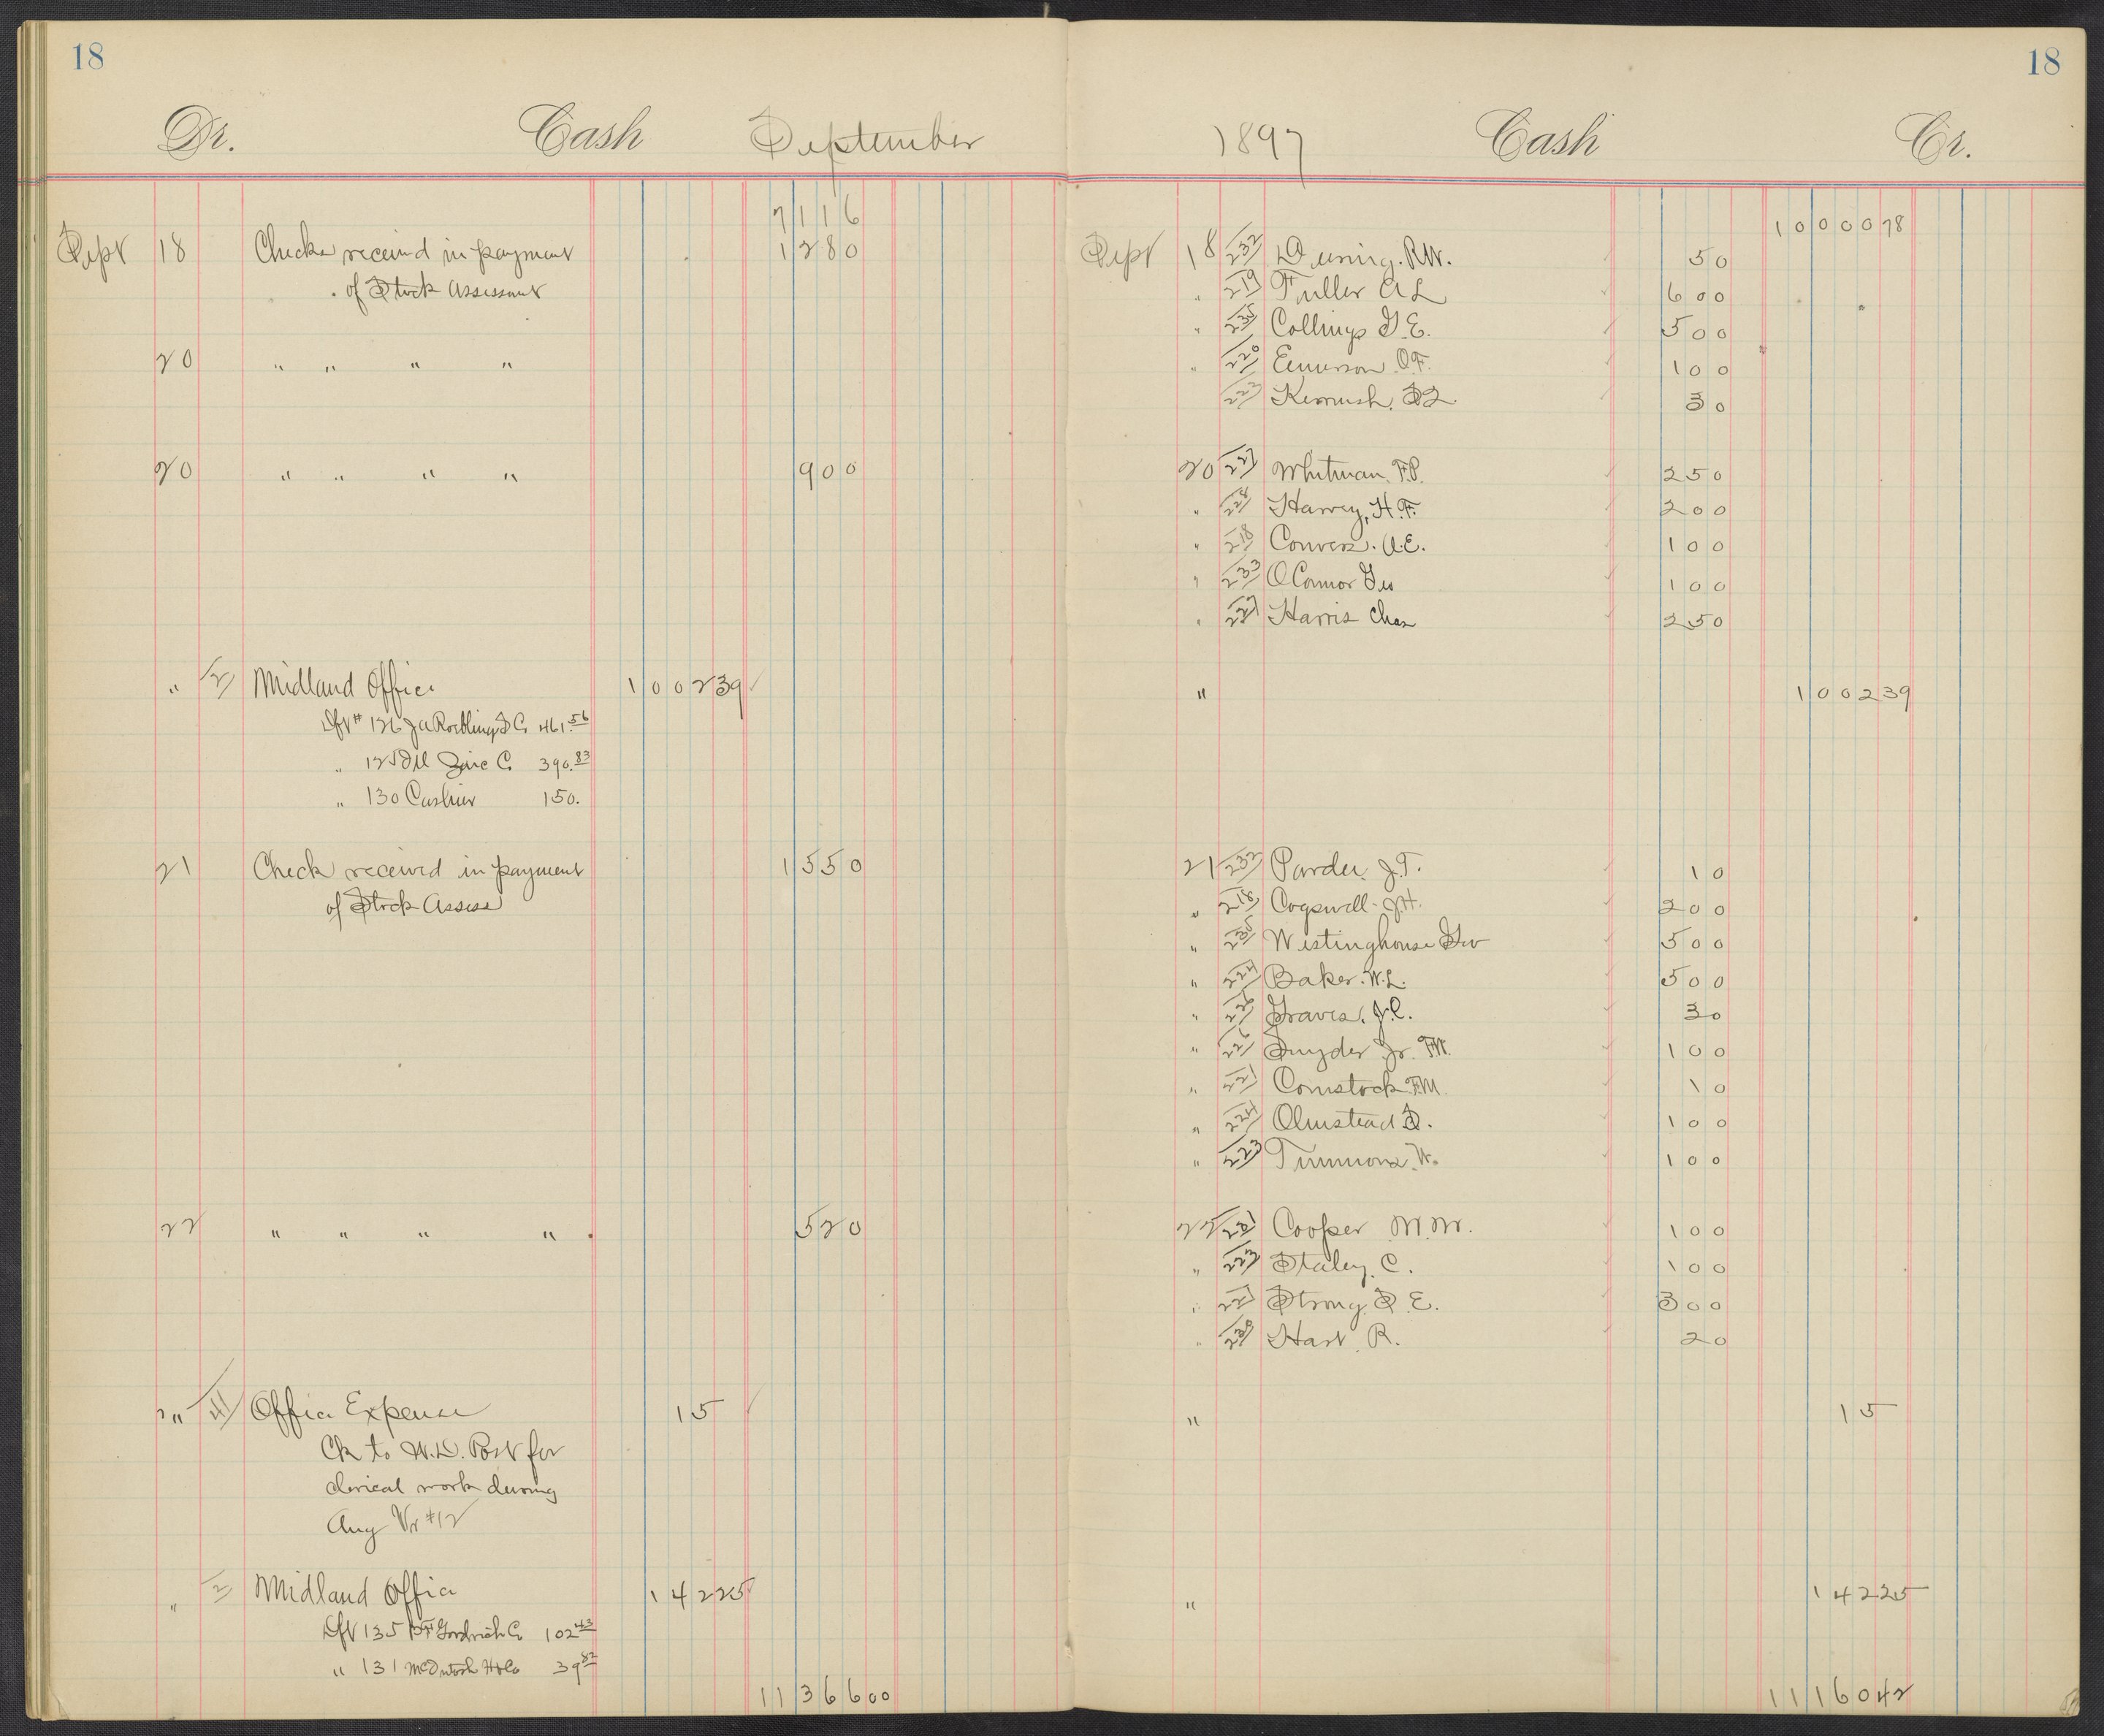 18
18
Dr. Cash September
1897 Cash Cr.
7116
Sept 18 Checks received in payment 1280
of Stock Assessment
20 " " " "
20 " " " " 900
" 2 Midland Office 1002 39
Dft # 126 J A Roeblings S Co 461.56
" 125 Ill Zinc Co 390.83
" 130 Cashier 150.
21 Check received in payment 1550
of Stock Assess
22 " " " " 520
" 41 Office Expense 15
Ck to W.D. Post for
clerical work during
Aug Vr #12
" 2 Midland Office 142 25
Dft 135 B F Goodrich Co 102 43
" 131 McIntosh H & Co 39 82
11366 00
10000 78
Sept 18 232 Deming. R.W. 50
" 219 Fuller A L 600
" 235 Collings G. E. 500
" 220 Emerson O.F. 100
223 Kermish. S L 30
20 227 Whitman. F.P. 250
" 228 Harvey, H.F. 200
" 218 Convers. A.E. 100
" 233 O'Connor Geo 100
" 227 Harris Chas 250
" 1002 39
21 232 Pardee. J.T. 10
" 218 Cogswell. J.H. 200
" 235 Westinghouse Geo 500
" 224 Baker. W.L. 500
" 226 Graves. J.C. 30
" 226 Snyder Jr. F.W. 100
" 221 Comstock F.M. 10
" 224 Olmstead S. 100
" 223 Timmons. W. 100
22 231 Cooper M.M. 100
" 223 Staley. C. 100
" 221 Strong. S. E. 300
" 230 Hart. R. 20
" 15
" 142 25
11160 42